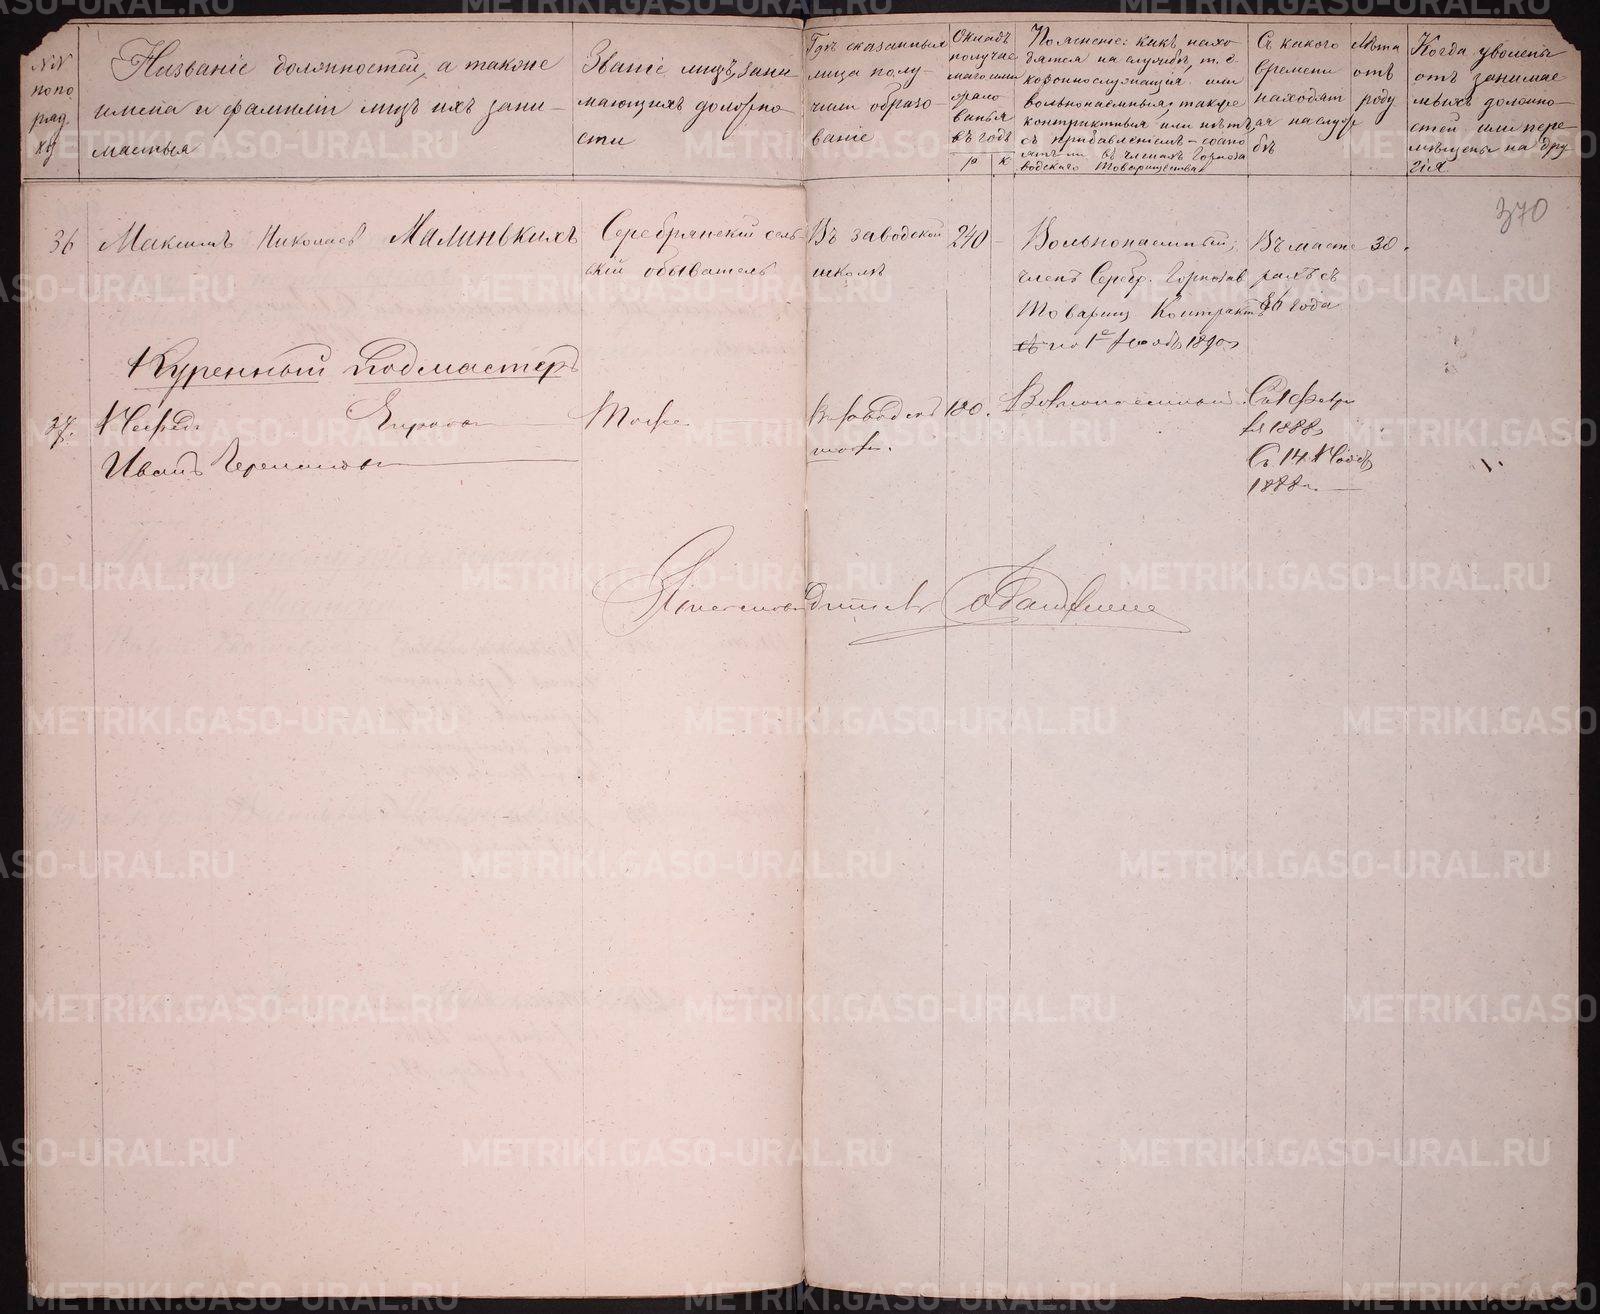 №№ по по ряд ку
Названіе должностей, а также
имена и фамиліи лицъ ихъ зани-
мающія
Званіе лицъ, зани-
мающихъ должно-
сти
Гдѣ сказанныя
лица полу-
чили образо-
ваніе
Окладъ
получае
маго ими
жало
ванья
въ годъ
р к
Поясненіе: какъ нахо
дятся на службѣ, т. е.
короннослужащія или
вольнонаемныя, также
контрактныя или нѣтъ,
съ прибавленіемъ - состо
ятъ ли въ членахъ Горноза
водскаго товарищества
Съ какого
времени
находят
ся на служ
бѣ
Лѣта
отъ
роду
Когда уволены
отъ занимае
мыхъ должно-
стей или пере-
мѣщены на дру
гія
370
36 Максимъ Николаевъ Малинькихъ
Серебрянскій сель
скій обыватель
Въ заводской
школѣ
240 -
Вольнонаемный;
членъ Серебр. Горнозав
Товарищ Контрактъ
по 1е 1890
Въ масте
рахъ съ
86 года
30.
Куренный Подмастер
37.
Тоже
В заводск
школ.
180.
Вольнонаемный.
Съ 1 Февр
1888
Иванъ
Съ 14 Нояб
1888 г.
METRIKI.GASO-URAL.RU